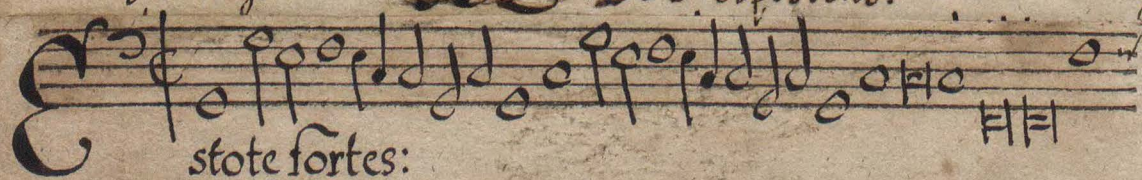 Estote fortes: